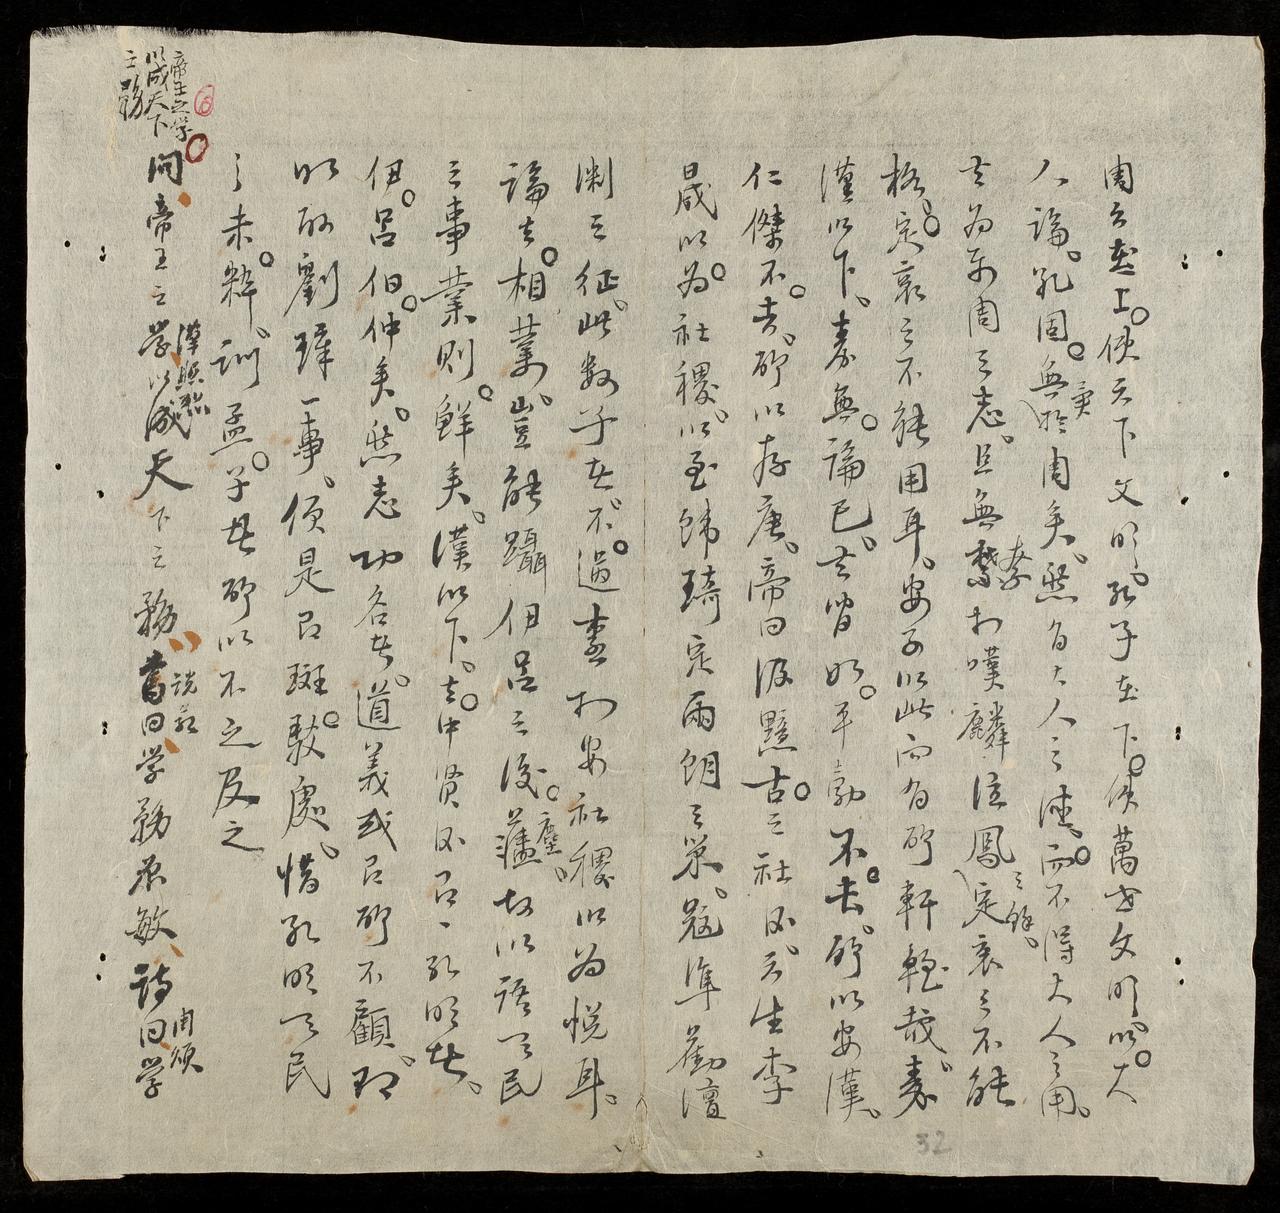 周公在上。使天下文明。孔子在下。使萬世文明。以大
人論。孔固無異於周矣。然有大人之德。而不得大人之用。
夫為東周之志。且無奈於嘆麟泣鳳之餘。定哀之不能
格。定哀之不能用耳。安可以此而有所軒輊哉。秦
漢以下。秦無論已。夫皆如。平勃不去。所以安漢。
仁傑不去。所以存唐。帝曰汲黯古之社臣。天生李
晟以為社稷。以至韓琦定兩朝之策。寇準勸澶
淵之征。此數子者。不過盡於安社稷以為悅耳。
論夫相業。豈能躡伊呂之後塵。故以語天民
之事業則鮮矣。漢以下。其中賢臣一孔明者。
伊呂伯仲矣。然志功名者。道義或有所不顧。
如取劉璋一事。便是有斑駁處。惜孔明天民
之未粹。訓孟子者所以不之及之
問帝王之学以成天下之務 書曰学務時敏 詩曰学
說命
周頌
帝王之学
以成天下
之務
32